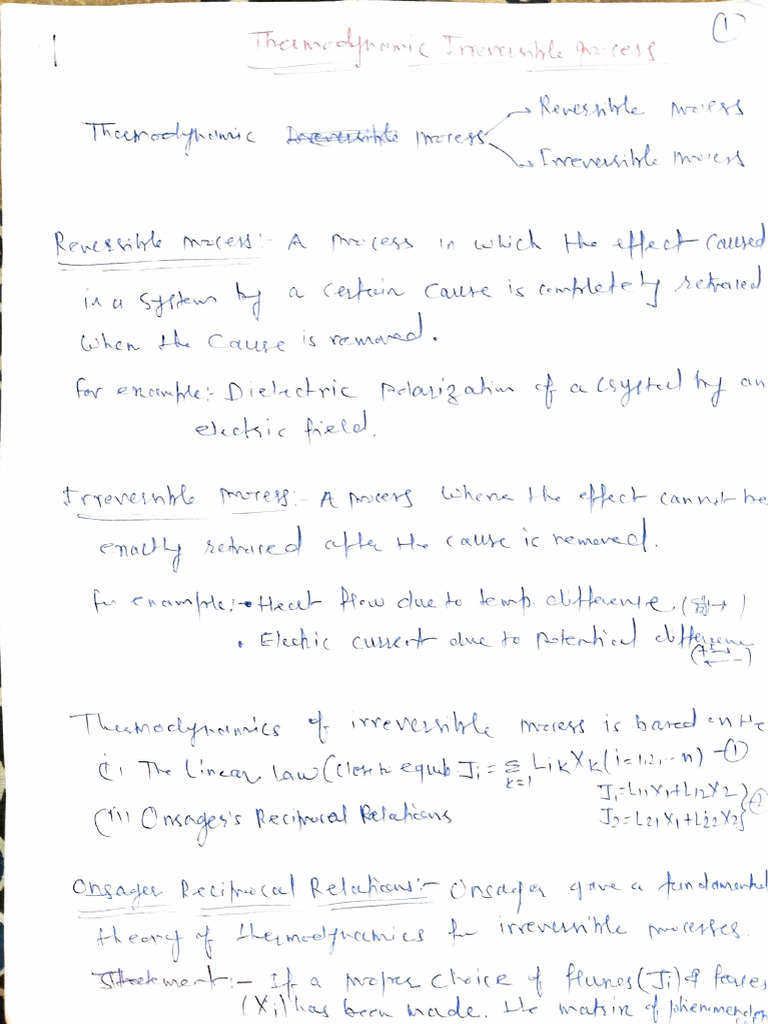 ①
Thermodynamic Irreversible process
Thermodynamic Irreversible process → Reversible process
→ Irreversible process
Reversible process:- A process in which the effect caused
in a system by a certain cause is completely retraced
when the cause is removed.
for example:- Dielectric polarization of a crystal by an
electric field.
Irreversible process:- A process where the effect cannot be
exactly retraced after the cause is removed.
for example:- • Heat flow due to temp. difference
• Electric current due to potential difference
Thermodynamics of irreversible process is based on the
(i) The linear law (close to equib. Ji = Σ k=1 Lik Xk (i=1,2,..n) -①
J1 = L11X1 + L12X2
(ii) Onsager's Reciprocal Relations J2 = L21X1 + L22X2 } ②
Onsager Reciprocal Relations:- Onsager gave a fundamental
theory of thermodynamics for irreversible processes.
Statement:- If a proper choice of fluxes (Ji) & forces
(Xi) has been made, the matrix of phenomenolo